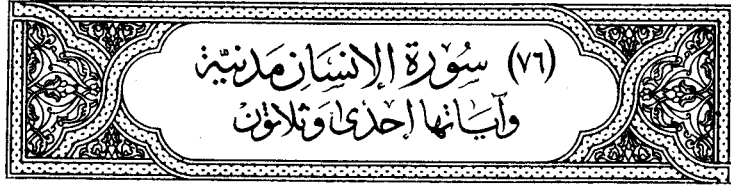 (٧٦) سُورَة الإنسَان مَدنيّة
وآياتها إحدى وَثلاثون